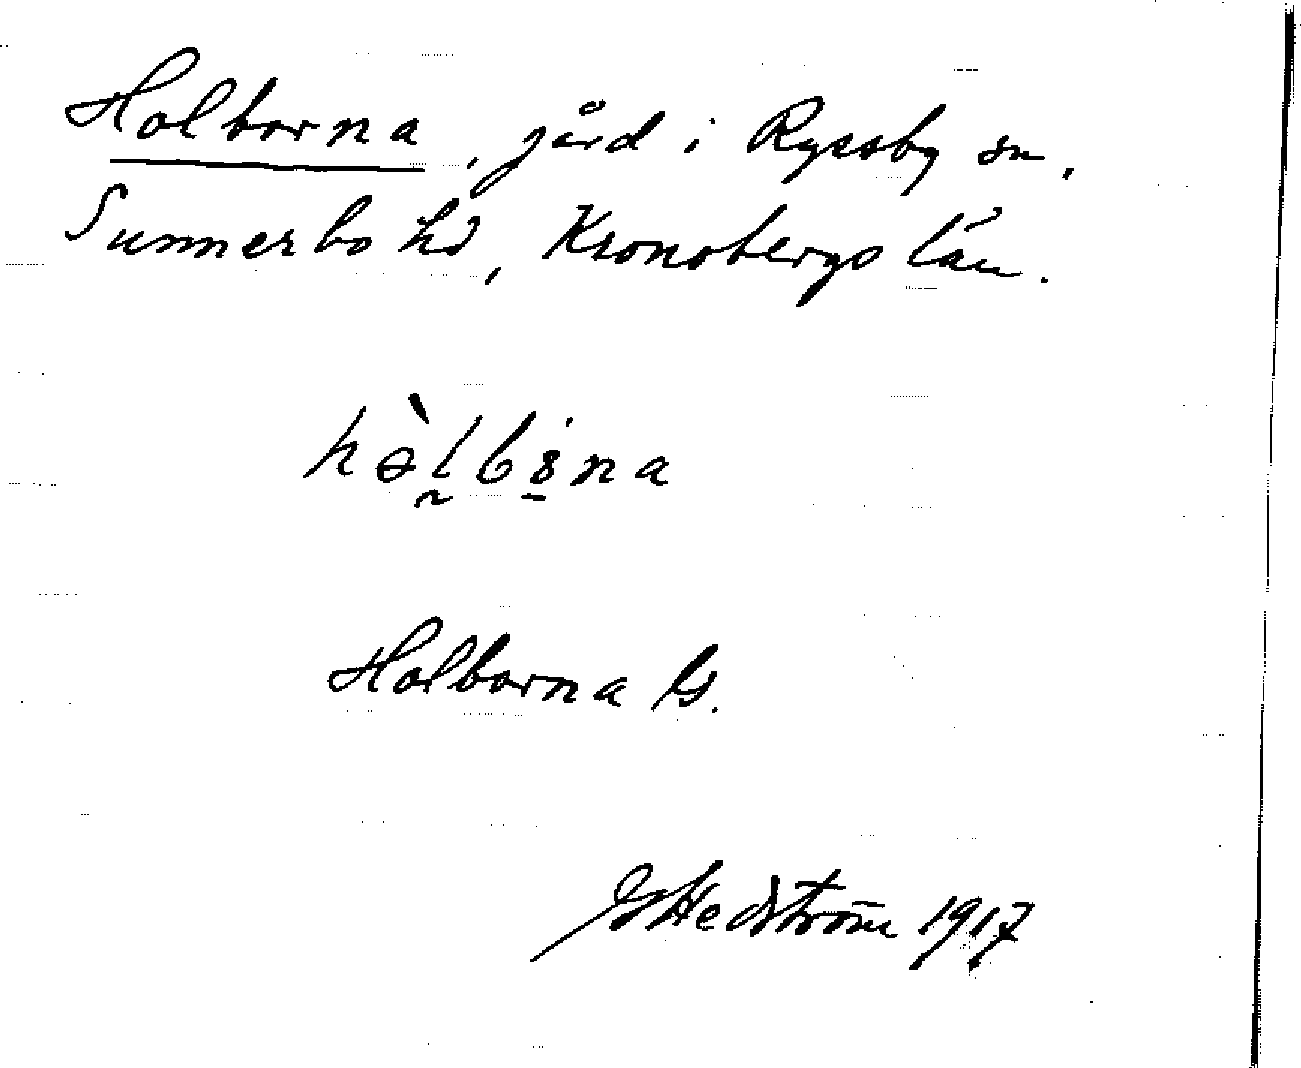 Holborna, gård i Ryssby sn,
Sunnerbo hd, Kronobergs län.
Holborna G.
G Hedström 1917